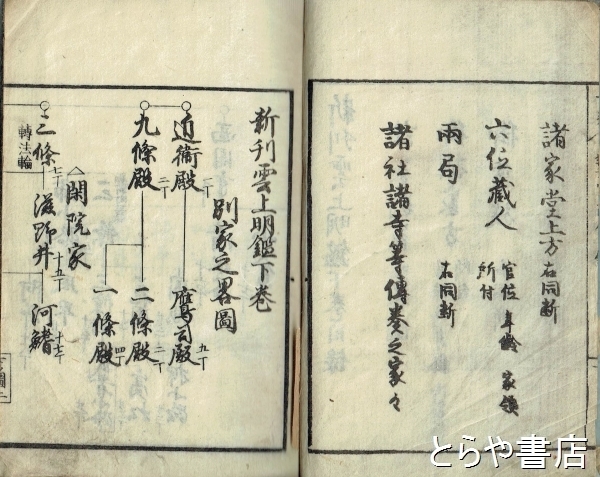 諸家堂上方 右同断
六位蔵人 官位 年齢 家領
所付
兩局 右同断
諸社諸寺等傳奏之家々
新刊雲上明鑑下巻
別家之畧圖
近衞殿 二丁 鷹司殿 九丁
九條殿 二條殿
一條殿 四丁
閑院家
三條 七丁 滋野井 十五丁 河鰭 十七丁
轉法輪
とらや書店